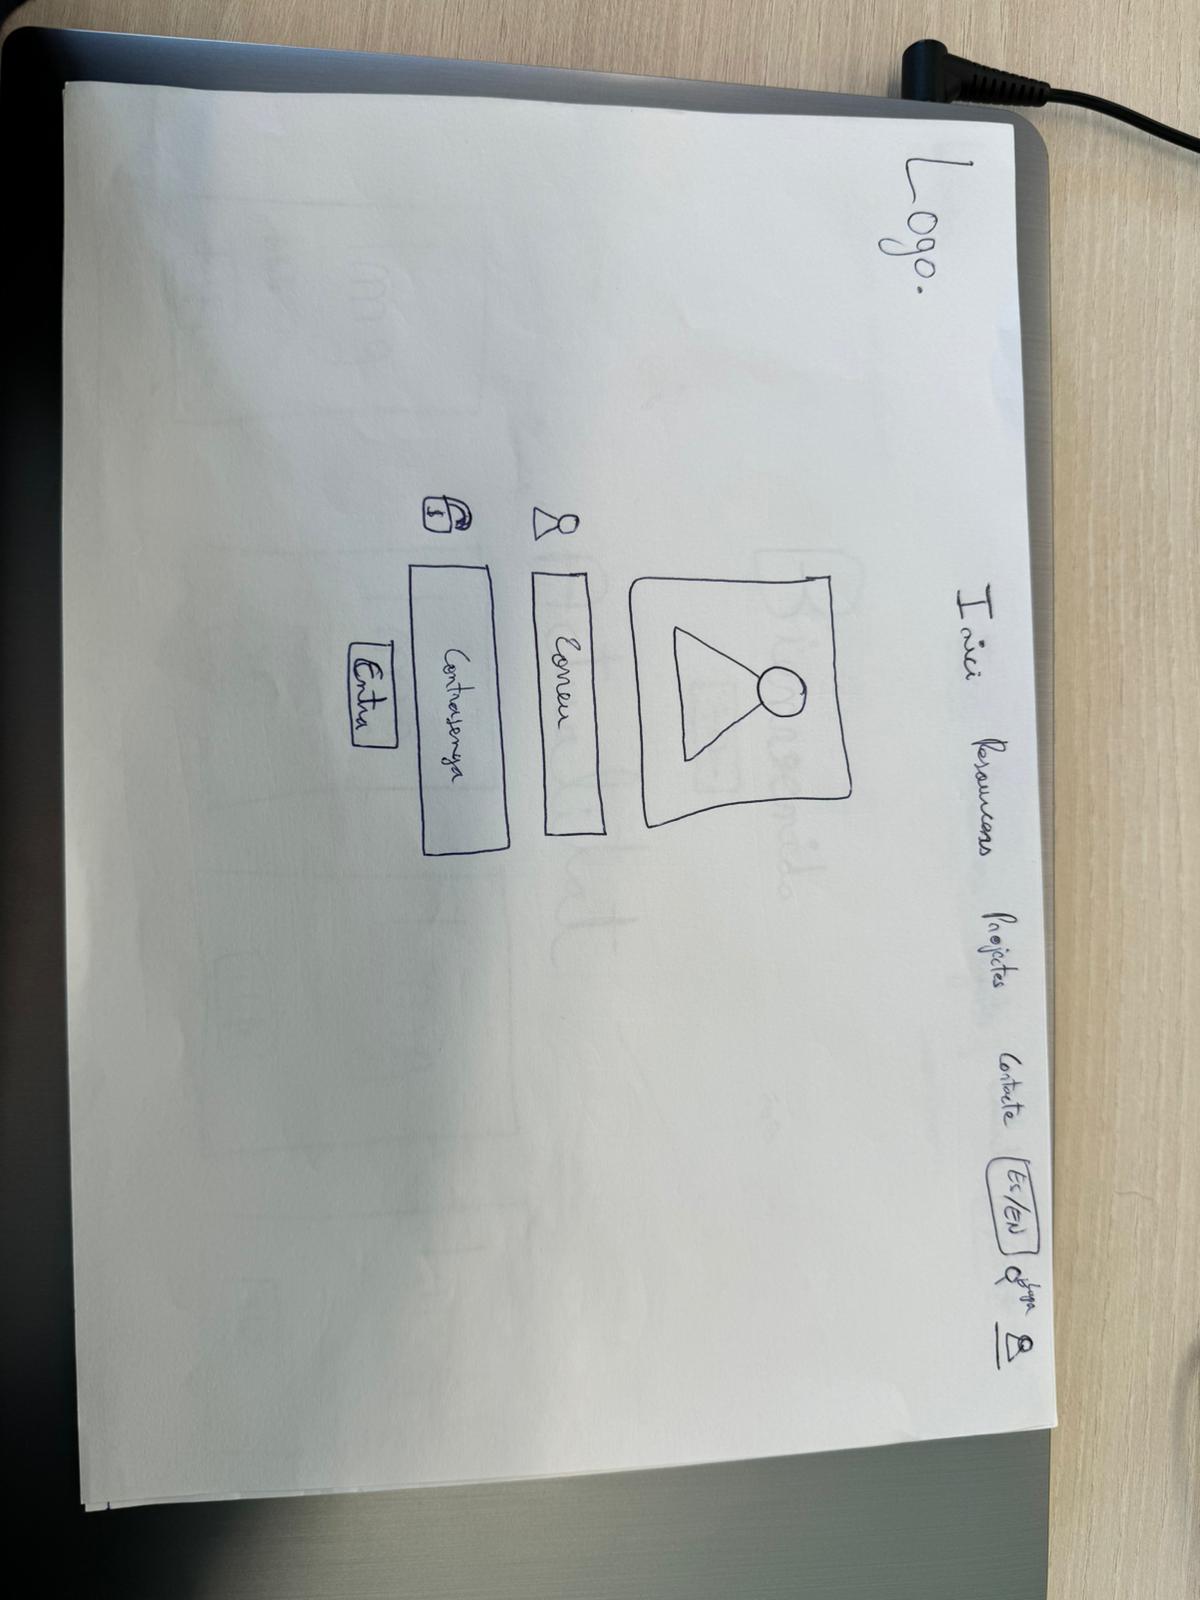 Inici Resources Projectes Contacte ES/EN Lupa
Logo.
Correu
Contrasenya
Entra